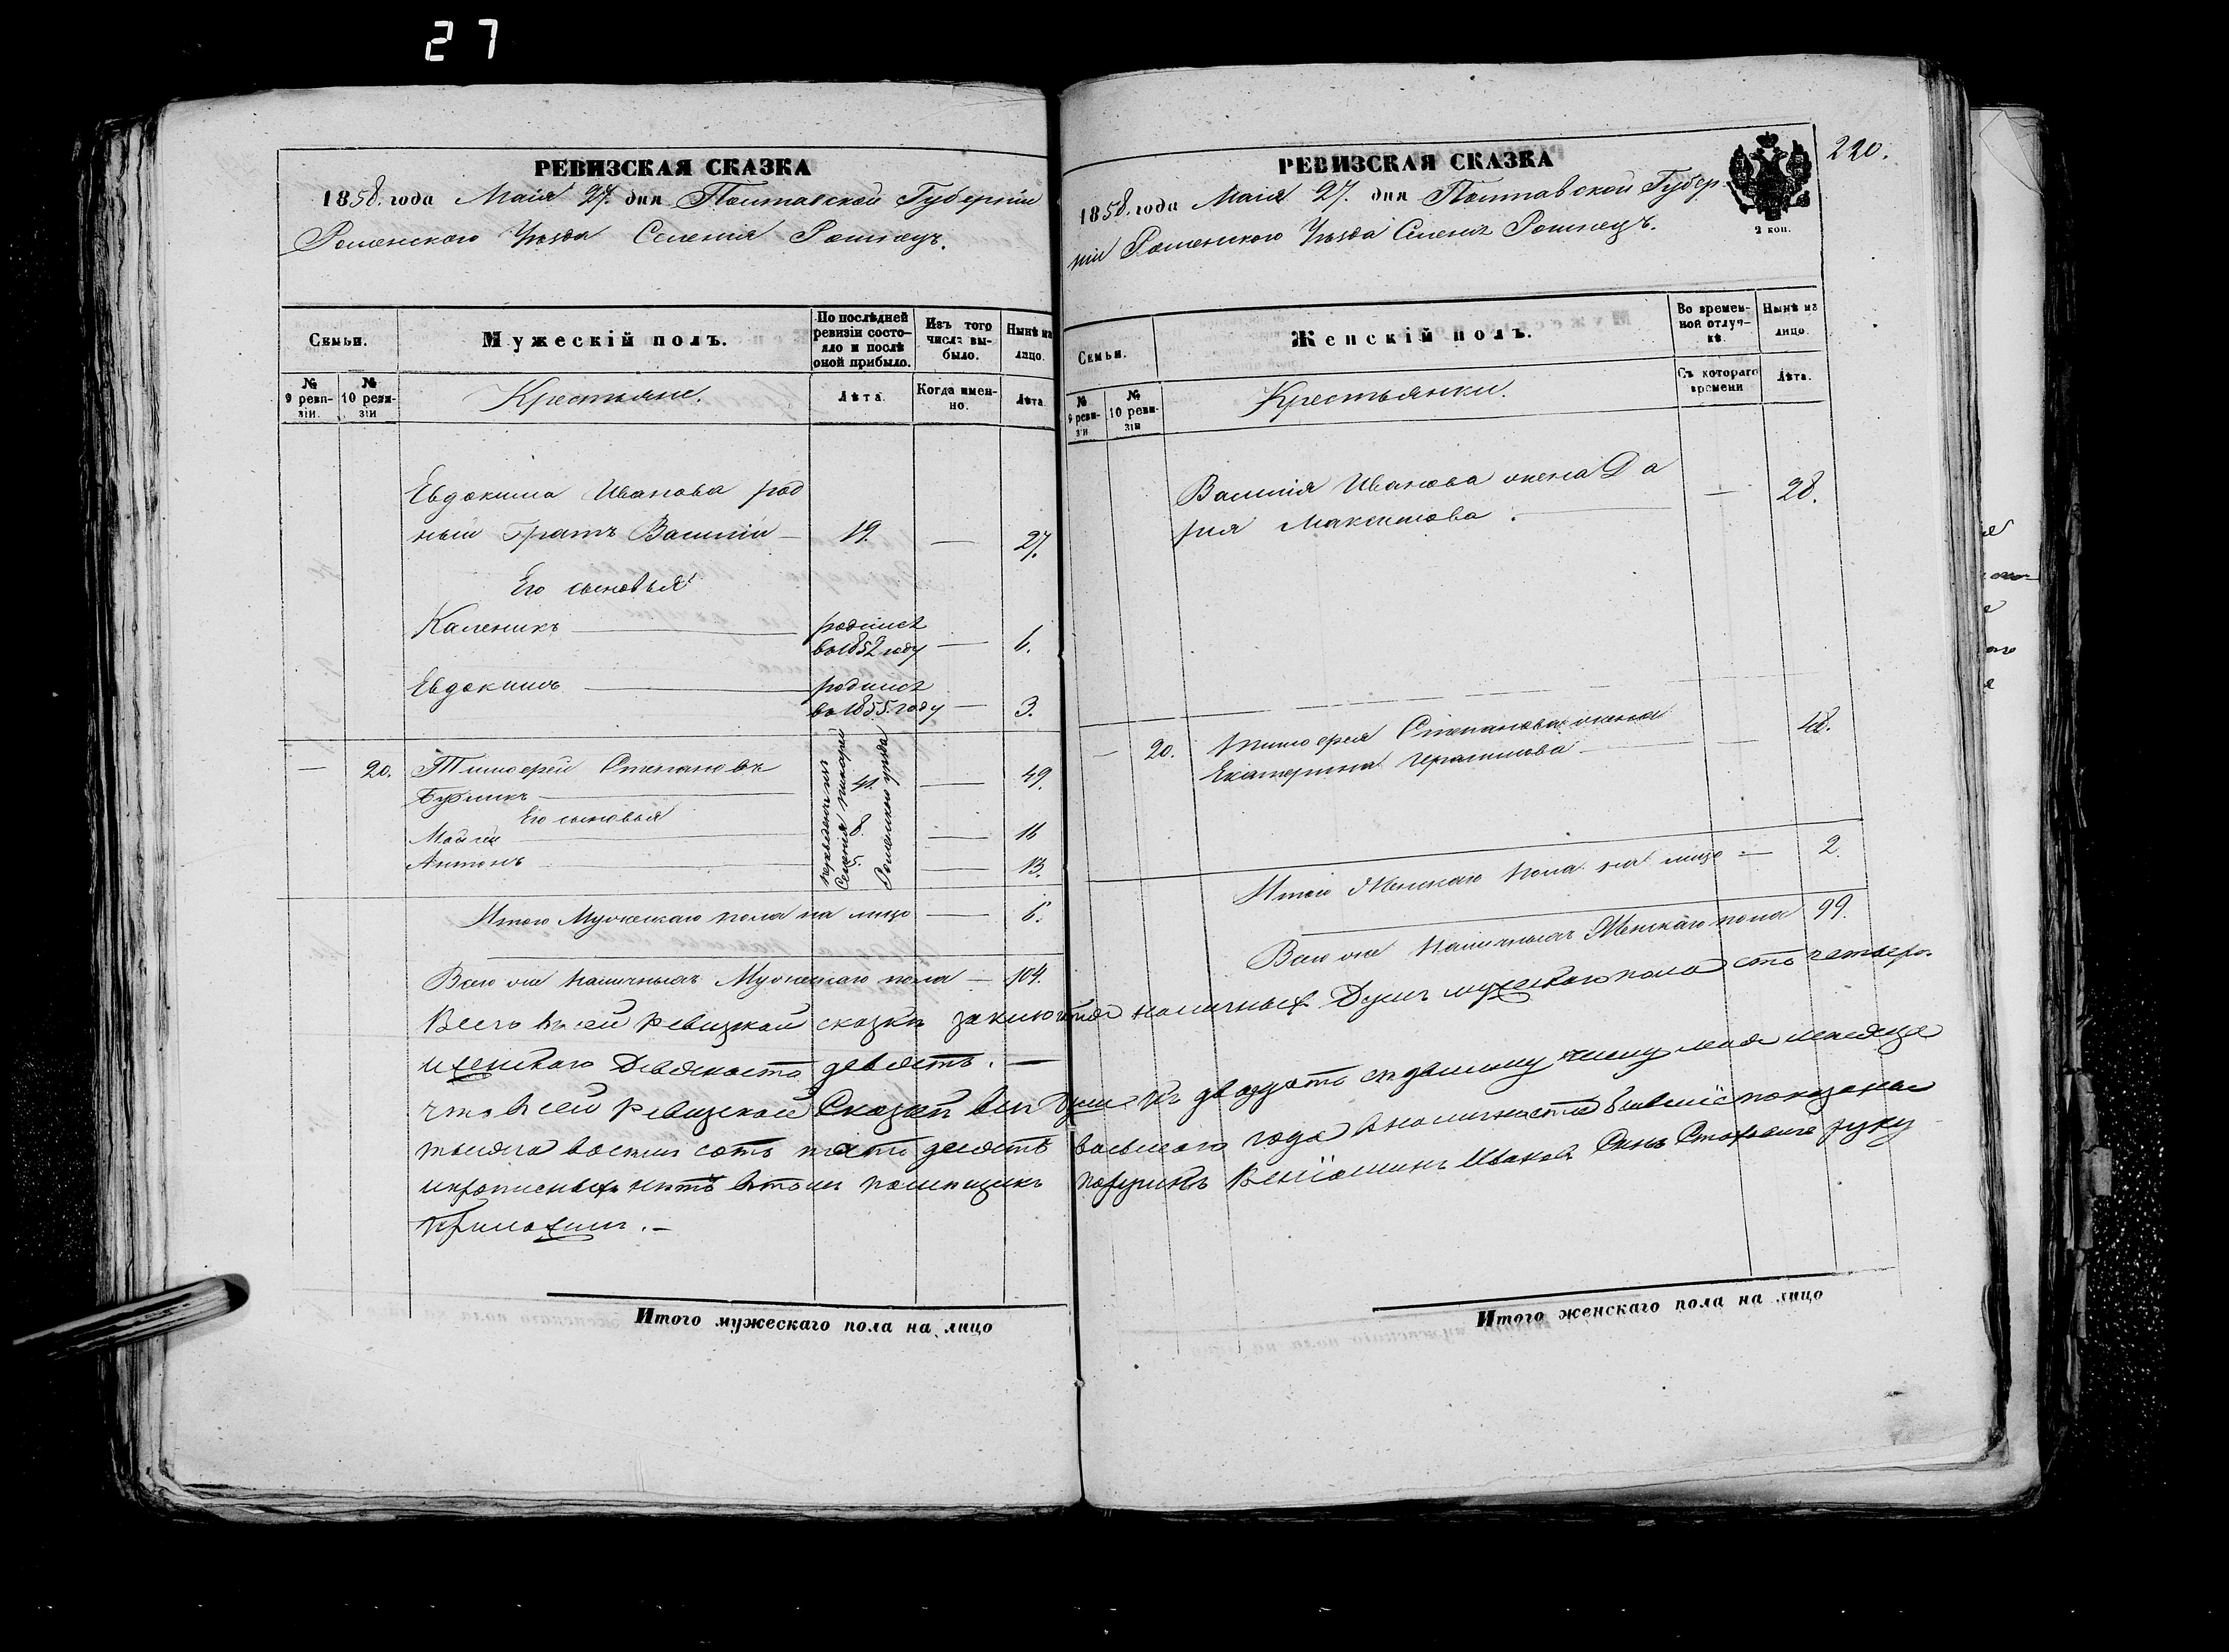 27
РЕВИЗСКАЯ СКАЗКА
1858. года Маія 27. дня Полтавской Губерніи
Роменского Уѣзда Селенія
Семьи.
Мужескій полъ.
По послѣдней ревизіи состояло и послѣ оной прибыло.
Изъ того числа выбыло.
Нынѣ на лицо.
№ 9 ревизіи.
№ 10 ревизіи
Крестьяне.
Лѣта.
Когда именно.
Лѣта.
Евдокима Иванова род
ный братъ Василій — 19. — 27.
Его сыновья
Каленикъ — родился во 1852 году — 6.
Евдокимъ — родился во 1855. году — 3.
— 20. Тимофей Степановъ
Бубликъ — 41. — 49.
Его сыновья
Мойсей — 8 — 16
Антонъ — 5. — 13.
Селенія
Роменского уѣзда
Итого Мужескаго пола на лицо — 6.
Всего же наличныхъ Мужескаго пола — 104.
РЕВИЗСКАЯ СКАЗКА
220.
1858. года Маія 27. дня Полтавской Губер-
ніи Роменского Уѣзда Селенія
2 коп.
Семьи.
Женскій полъ.
Во временной отлучкѣ.
Нынѣ на лицо.
№ 9 ревизіи
№ 10 ревизіи
Крестьянки.
Съ котораго времени
Лѣта.
Василія Иванова жена Да
рія Максимова. — 28.
— 20. Тимофея Степанова жена
Екатерина — 48.
Итого Женскаго пола на лицо — 2.
Всего же наличныхъ Женскаго пола 99.
Всего въ сей ревизской сказкѣ заключается наличныхъ Душъ мужескаго пола сто четыре.
и женскаго Девяносто девять. —
что въ сей ревизской Сказкѣ всѣ Души къ двадцать седьмому числу мая месяца
тысяча восемь сотъ пять десятъ восьмого года въ наличности бывшіе показаны
и прописныхъ нѣтъ въ томъ помещикъ Иванов Сынъ руку
приложилъ. —
Итого мужескаго пола на лицо
Итого женскаго пола на лицо